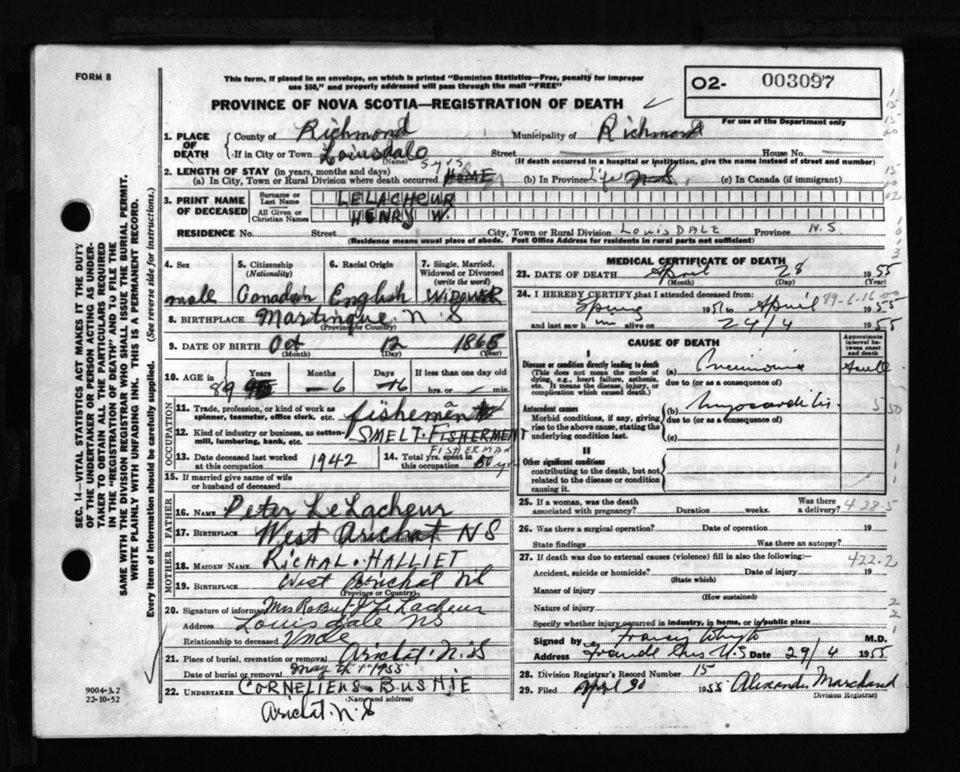 FORM 8
This form, if placed in an envelope, on which is printed "Dominion Statistics—Free, penalty for improper
use $50," and properly addressed will pass through the mail "FREE"
O2- 003097
For use of the Department only
PROVINCE OF NOVA SCOTIA—REGISTRATION OF DEATH
1. PLACE OF DEATH
County of Richmond Municipality of Richmond
If in City or Town Louisdale Street House No.
(Name) (If death occurred in a hospital or institution, give the name instead of street and number)
2. LENGTH OF STAY (in years, months and days) 5 yrs
(a) In City, Town or Rural Division where death occurred HOME (b) In Province life N S (c) In Canada (if immigrant)
3. PRINT NAME OF DECEASED
Surname or Last Name LELACHEUR
All Given or Christian Names HENRY W.
RESIDENCE No. Street City, Town or Rural Division LOUISDALE Province N.S.
(Residence means usual place of abode. Post Office Address for residents in rural parts not sufficient)
4. Sex 5. Citizenship (Nationality) 6. Racial Origin 7. Single, Married, Widowed or Divorced (write the word)
male Canadian English WIDOWER
8. BIRTHPLACE Martinque N S
(Province or Country)
9. DATE OF BIRTH Oct 12 1865
(Month) (Day) (Year)
10. AGE in Years Months Days If less than one day old
89 6 16 hrs. or min.
OCCUPATION
11. Trade, profession, or kind of work as spinner, teamster, office clerk, etc. fisheman
12. Kind of industry or business, as cotton-mill, lumbering, bank, etc. SMELT. FISHERMENT
FISHERMAN
13. Date deceased last worked at this occupation 1942 14. Total yrs. spent in this occupation 50 yrs
15. If married give name of wife or husband of deceased
FATHER
16. NAME Peter LeLacheur
17. BIRTHPLACE West Arichat N S
MOTHER
18. MAIDEN NAME RICHAL. HALLIET
19. BIRTHPLACE West Arichat N S
(Province or Country)
20. Signature of informant Mrs Robert J LeLacheur
Address Louisdale N S
Relationship to deceased Uncle
21. Place of burial, cremation or removal Arichat. N. S
Date of burial or removal May th 1 1955
22. UNDERTAKER CORNELIENS BUSHIE
(Name and address)
Arichat. N. S
9004-3.2
22-10-52
SEC. 14—VITAL STATISTICS ACT MAKES IT THE DUTY
OF THE UNDERTAKER OR PERSON ACTING AS UNDER-
TAKER TO OBTAIN ALL THE PARTICULARS REQUIRED
IN THE "REGISTRATION OF DEATH" AND TO FILE THE
SAME WITH THE DIVISION REGISTRAR WHO SHALL ISSUE THE BURIAL PERMIT.
WRITE PLAINLY WITH UNFADING INK. THIS IS A PERMANENT RECORD.
Every item of information should be carefully supplied. (See reverse side for instructions.)
MEDICAL CERTIFICATE OF DEATH
23. DATE OF DEATH April 28 1955
(Month) (Day)
24. I HEREBY CERTIFY that I attended deceased from 89-6-16
Spring 1951 to April 1955
and last saw him alive on 24/4 1955
CAUSE OF DEATH
Approximate interval between onset and death
I
Disease or condition directly leading to death
(This does not mean the mode of dying, e.g., heart failure, asthenia, etc. It means the disease, injury, or complication which caused death.)
(a) Pneumonia
due to (or as a consequence of)
Antecedent causes
Morbid conditions, if any, giving rise to the above cause, stating the underlying condition last.
(b) myocarditis
due to (or as a consequence of)
(c)
II
Other significant conditions
contributing to the death, but not related to the disease or condition causing it.
25. If a woman, was the death associated with pregnancy? Duration weeks. Was there a delivery?
26. Was there a surgical operation? Date of operation 19
State findings Was there an autopsy?
27. If death was due to external causes (violence) fill in also the following:—
422.2
Accident, suicide or homicide? Date of injury 19
(State which)
Manner of injury
(How sustained)
Nature of injury
Specify whether injury occurred in industry, in home, or in public place
Signed by M.D.
Address Date 29/4 1955
28. Division Registrar's Record Number 15
29. Filed April 30 1955 Alexander Marchand
Division Registrar)